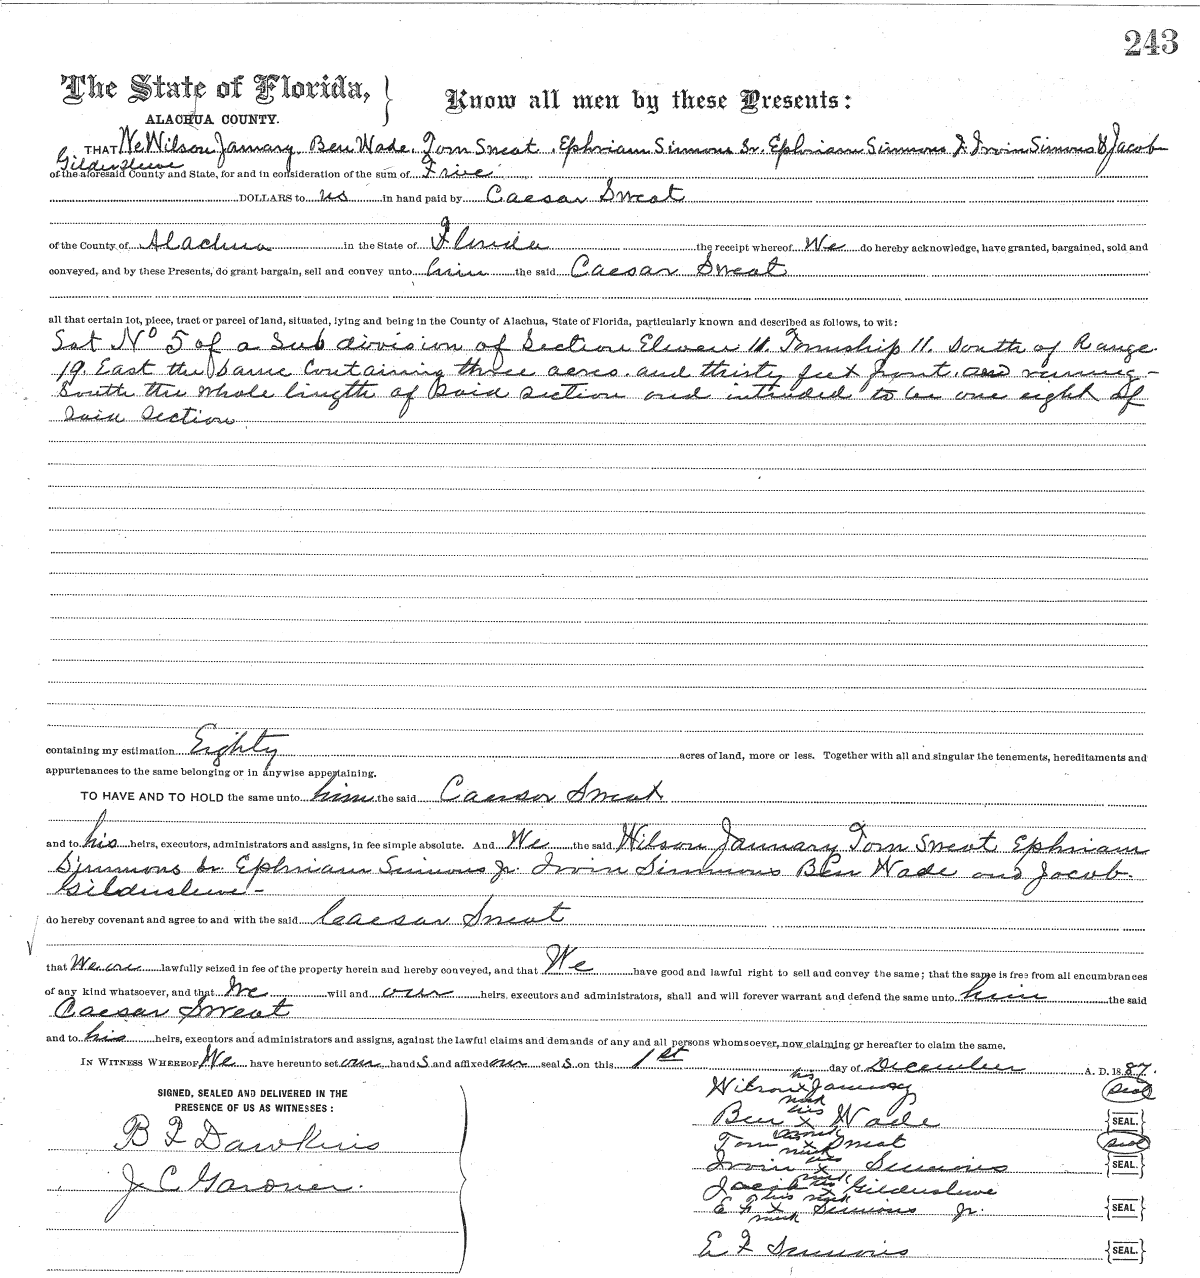 243
The State of Florida,
ALACHUA COUNTY.
Know all men by these Presents:
THAT We Wilson January. Ben Wade. Tom Sweat. Ephriam Simmons Sr. Ephriam Simmons J. Irvin Simmons & Jacob
Gildersleve
of the aforesaid County and State, for and in consideration of the sum of Five
DOLLARS to us in hand paid by Caesar Sweat
of the County of Alachua in the State of Florida the receipt whereof We do hereby acknowledge, have granted, bargained, sold and
conveyed, and by these Presents, do grant bargain, sell and convey unto him the said Caesar Sweat
all that certain lot, piece, tract or parcel of land, situated, lying and being in the County of Alachua, State of Florida, particularly known and described as follows, to wit:
Lot No 5 of a Sub division of Section Eleven 11. Township 11. South of Range
19. East the Same Containing three acres. and thirty feet front. and running -
South the whole lingth of Said Section and intended to be one eight of
Said Section
containing my estimation Eighty acres of land, more or less. Together with all and singular the tenements, hereditaments and
appurtenances to the same belonging or in anywise appertaining.
TO HAVE AND TO HOLD the same unto him the said Caesar Sweat
and to his heirs, executors, administrators and assigns, in fee simple absolute. And We the said Wilson January Tom Sweat Ephriam
Simmons Sr Ephriam Simmons Jr. Irvin Simmons Ben Wade and Jacob
Gildersleve -
do hereby covenant and agree to and with the said Caesar Sweat
that We are lawfully seized in fee of the property herein and hereby conveyed, and that We have good and lawful right to sell and convey the same; that the same is free from all encumbrances
of any kind whatsoever, and that We will and our heirs, executors and administrators, shall and will forever warrant and defend the same unto him the said
Caesar Sweat
and to his heirs, executors and administrators and assigns, against the lawful claims and demands of any and all persons whomsoever, now claiming or hereafter to claim the same.
IN WITNESS WHEREOF We have hereunto set our hand S and affixed our seal S on this 1st day of December A. D. 1887.
SIGNED, SEALED AND DELIVERED IN THE
PRESENCE OF US AS WITNESSES:
B F Dawkins
J. C. Gardner.
his
Wilson x January Seal
mark
his
Ben x Wade SEAL.
mark
Tom x Sweat Seal
mark his
Irvin x Simmons SEAL.
mark
Jacob x Gildersleve
his mark
E F x Simmons Jr. SEAL
mark
E F Simmons SEAL.